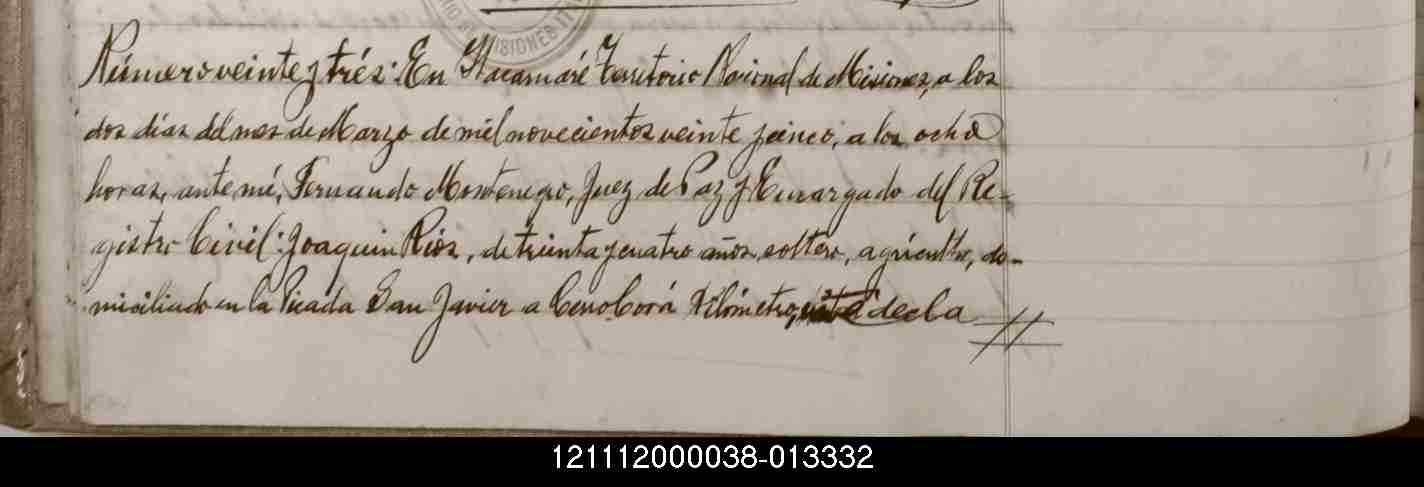 MISIONES
Número veinte y trés: En Itacaruaré Territorio Nacional de Misiones, a los
dos días del mes de Marzo de mil novecientos veinte y cinco, a las ocho
horas, ante mí, Fernando Montenegro, Juez de Paz y Encargado del Re-
gistro Civil: Joaquin Rios, de treinta y cuatro años, soltero, agricultor, do-
miciliado en la Picada San Javier a Cerro Corá Kilómetro decla
121112000038-013332